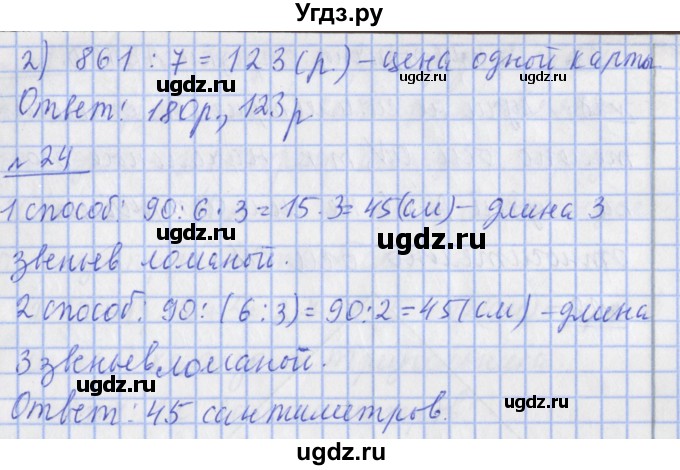 Угдз.ру
2) 861 : 7 = 123 (р.) – цена одной карты
Ответ: 180р., 123р
№ 24
1 способ: 90 : 6 · 3 = 15 · 3 = 45 (см) – длина 3
звеньев ломаной.
2 способ: 90 : (6 : 3) = 90 : 2 = 45 (см) – длина
3 звеньев ломаной.
Ответ: 45 сантиметров.
gdz.ru
gdz.ru
gdz.ru
gdz.ru
gdz.ru
gdz.ru
gdz.ru
gdz.ru
gdz.ru